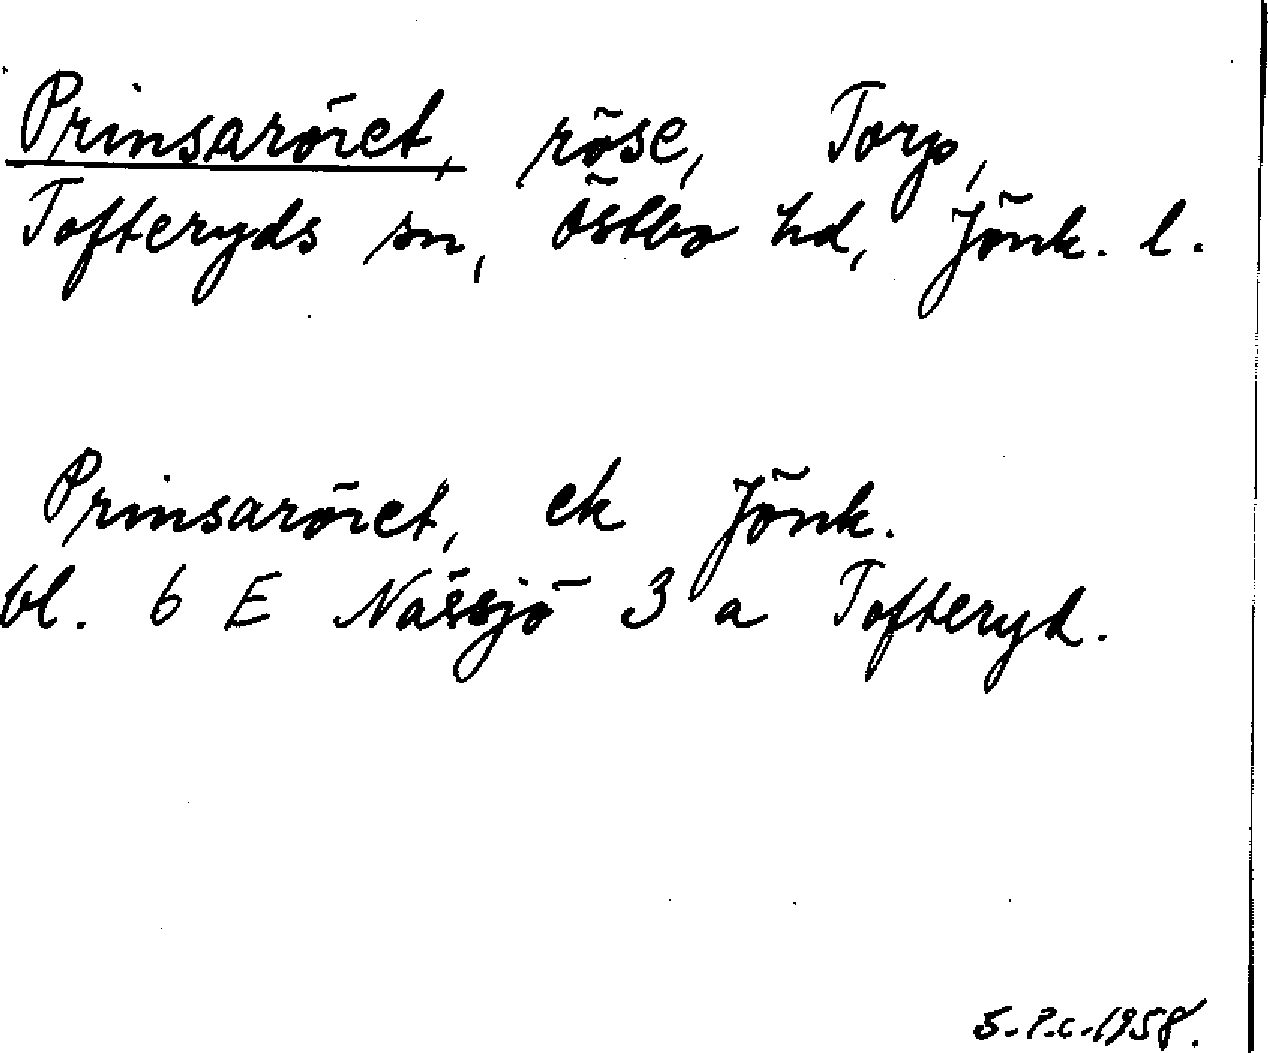 Prinsaröret, röse, Torp,
Tofteryds sn, Östbo hd, Jönk. l.
Prinsaröret, ek Jönk.
bl. 6 E Nässjö 3 a Tofteryd.
S.P.C. 1958.